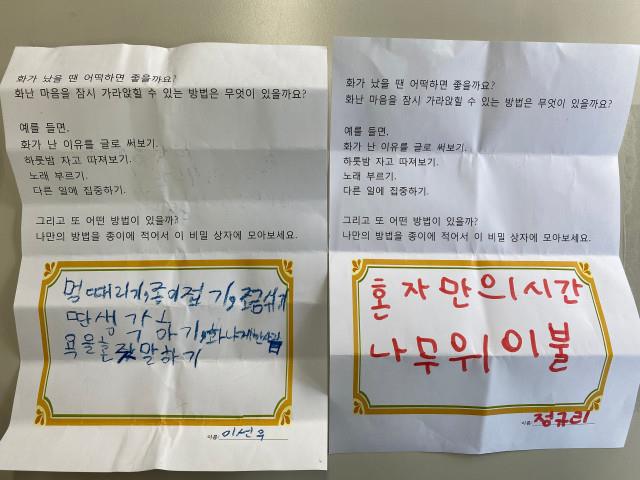 화가 났을 땐 어떡하면 좋을까요?
화난 마음을 잠시 가라앉힐 수 있는 방법은 무엇이 있을까요?
예를 들면.
화가 난 이유를 글로 써보기.
하룻밤 자고 따져보기.
노래 부르기.
다른 일에 집중하기.
그리고 또 어떤 방법이 있을까?
나만의 방법을 종이에 적어서 이 비밀 상자에 모아보세요.
멍때리기, 종이접기, 조금쉬기
딴생각하기, 화나게한사람
욕을혼잣말하기
이름: 이선우
화가 났을 땐 어떡하면 좋을까요?
화난 마음을 잠시 가라앉힐 수 있는 방법은 무엇이 있을까요?
예를 들면.
화가 난 이유를 글로 써보기.
하룻밤 자고 따져보기.
노래 부르기.
다른 일에 집중하기.
그리고 또 어떤 방법이 있을까?
나만의 방법을 종이에 적어서 이 비밀 상자에 모아보세요.
혼자만의시간
나무위이불
이름: 정규리